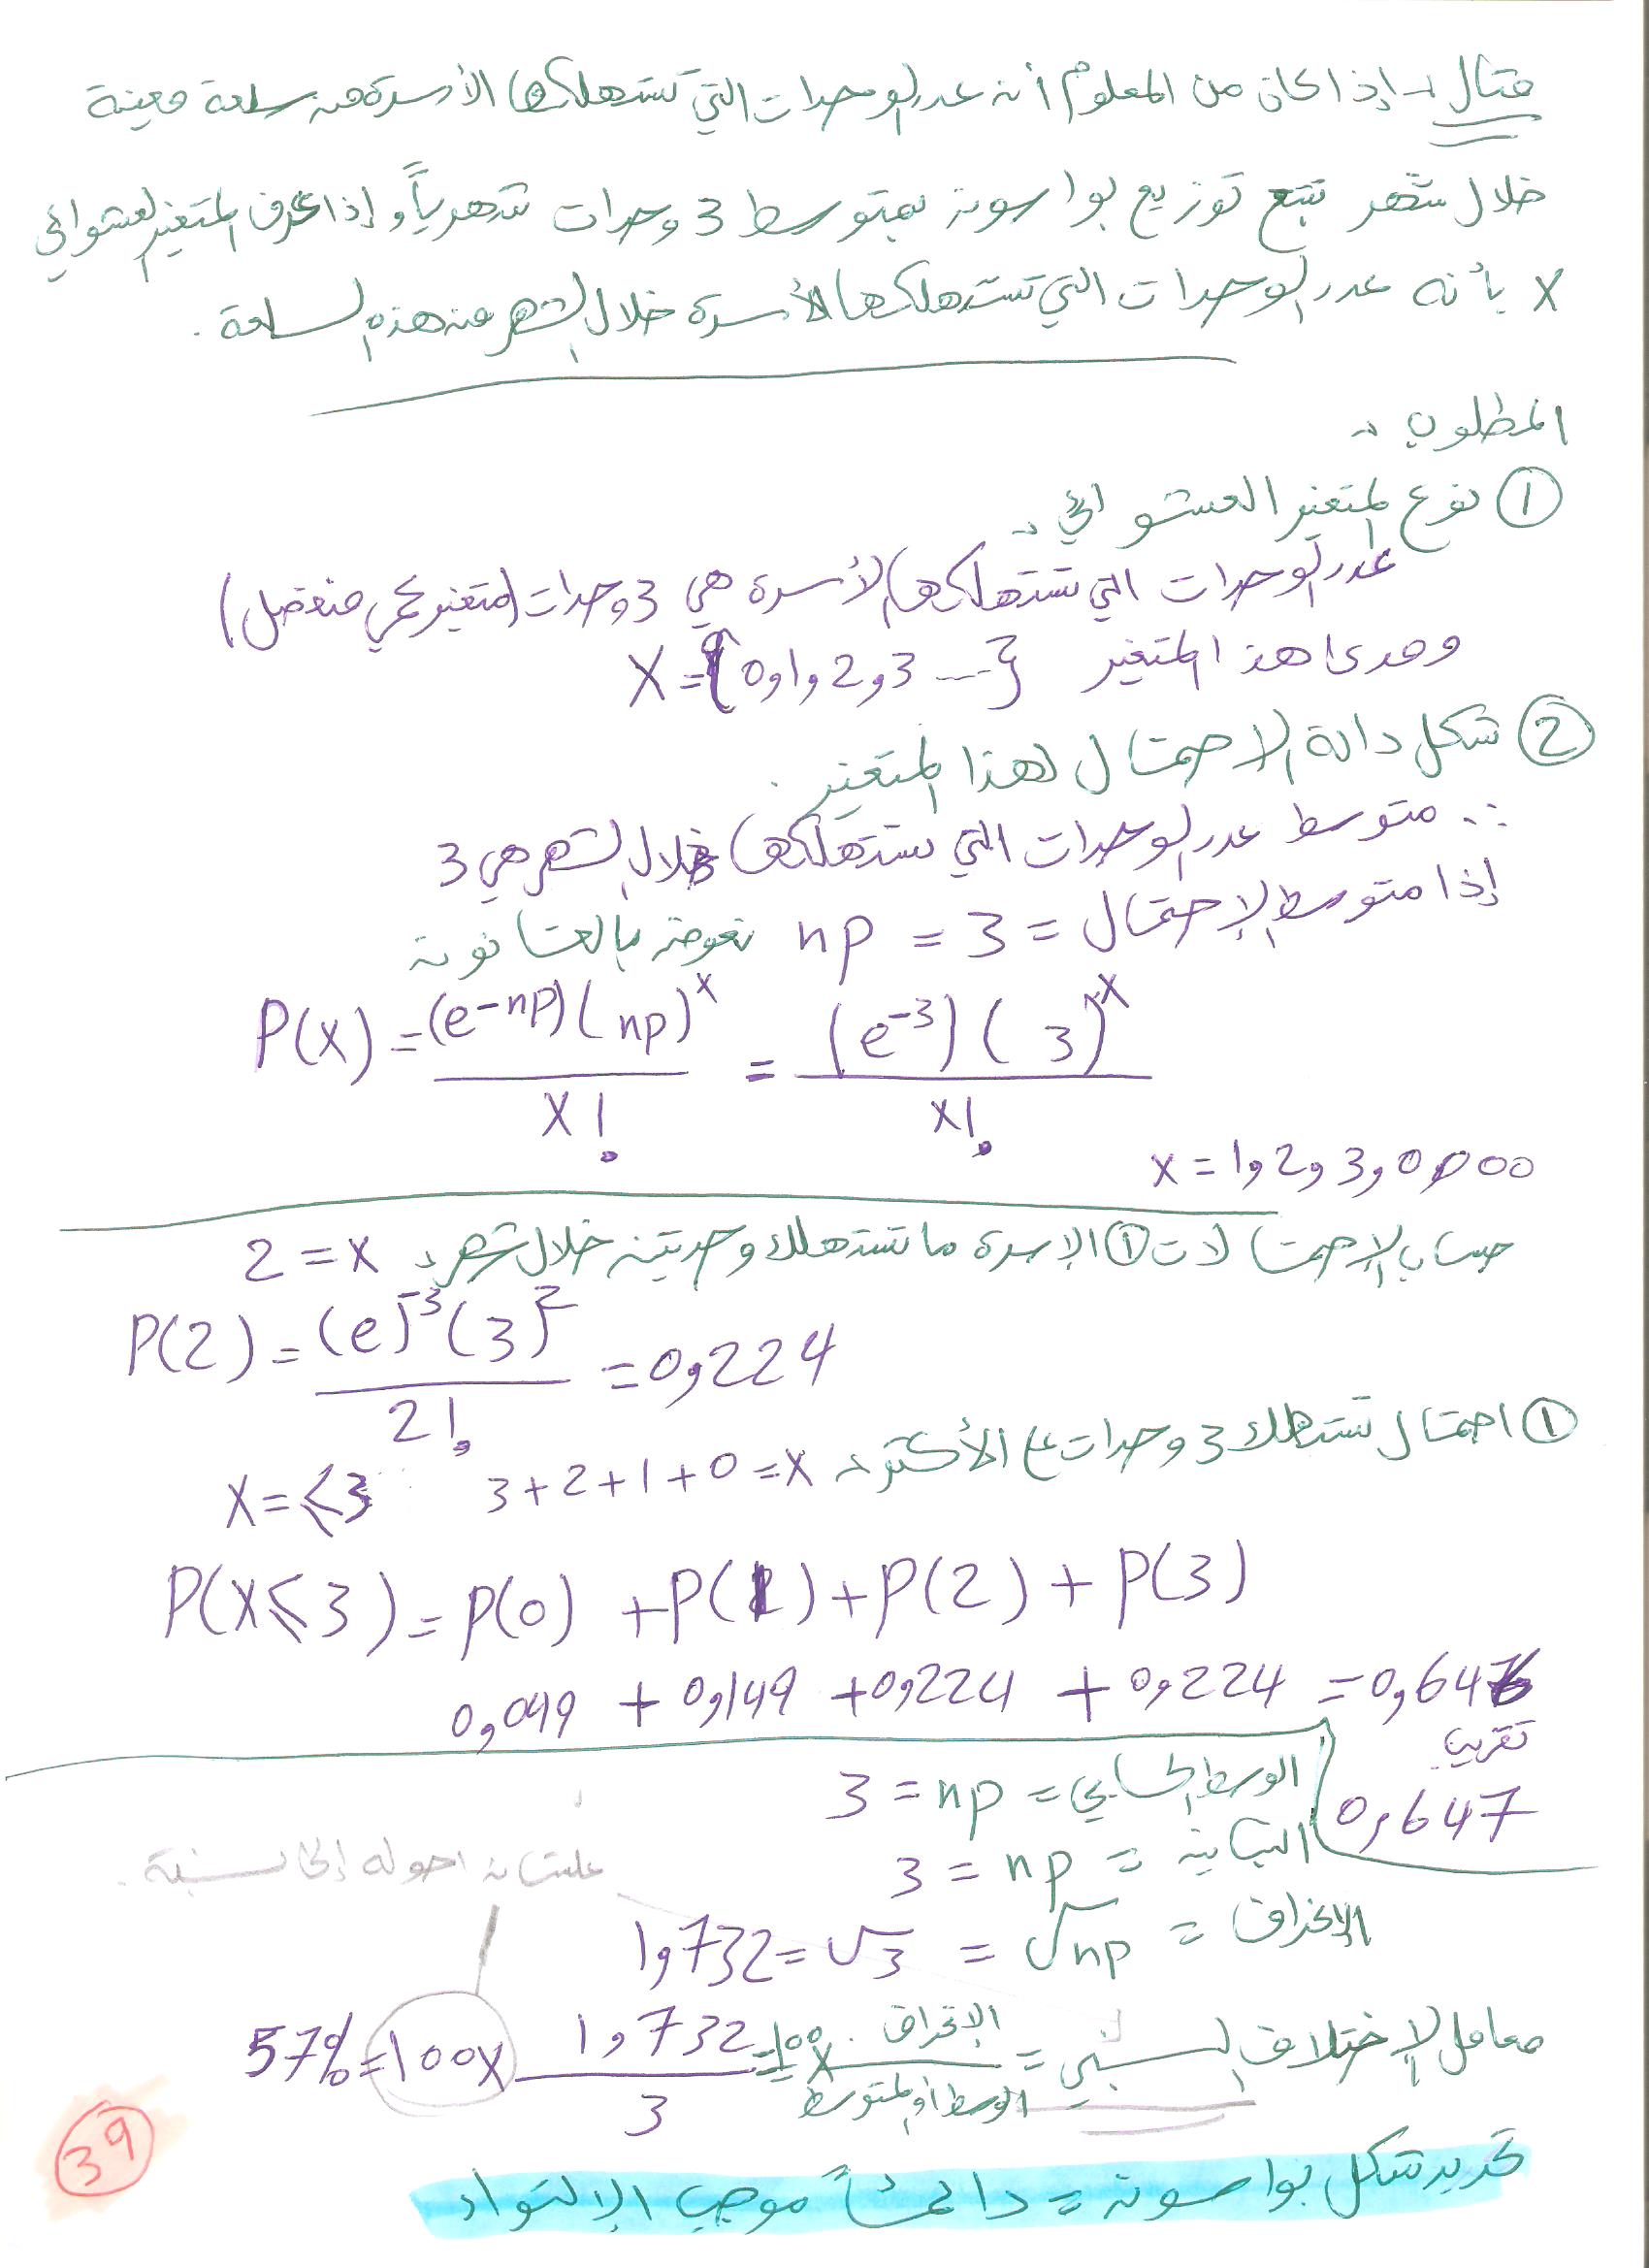 مثال :- إذا كان من المعلوم أن عدد الوحدات التي تستهلكها الأسرة من سلعة معينة
خلال شهر تتبع توزيع بواسون بمتوسط 3 وحدات شهرياً وإذا عرف المتغير العشوائي
X بأنه عدد الوحدات التي تستهلكها الأسرة خلال الشهر من هذه السلعة .
المطلوب :-
① نوع المتغير العشوائي :-
عدد الوحدات التي تستهلكها الأسرة هي 3 وحدات (متغير كمي منفصل)
ومدى هذا المتغير X = {0,1,2,3 ---}
② شكل دالة الاحتمال لهذا المتغير .
∵ متوسط عدد الوحدات التي تستهلكها خلال الشهر هي 3
إذا متوسط الإحتمال = 3 = np نعوض بالقانون
P(X) = (e-np)(np)^x / X! = (e^-3)(3)^x / X!
X = 1,2,3,0,000
حساب الإحتمالات ① الاسرة ما تستهلك وحدتين خلال شهر :- X = 2
P(2) = (e)^-3 (3)^2 / 2! = 0,224
① احتمال تستهلك 3 وحدات على الأكثر :- X = 0+1+2+3 X = ≤3
P(X≤3) = P(0) + P(1) + P(2) + P(3)
0,049 + 0,149 + 0,224 + 0,224 = 0,646
تقريب
0,647
الوسط الحسابي = np = 3
التباين = np = 3
علشان احوله إلى نسبة .
الإنحراف = √np = √3 = 1,732
معامل الإختلاف النسبي = الإنحراف / الوسط أو المتوسط × 100 = 1,732 / 3 × 100 = 57%
تحديد شكل بواسون = دائماً موجب الإلتواء
39